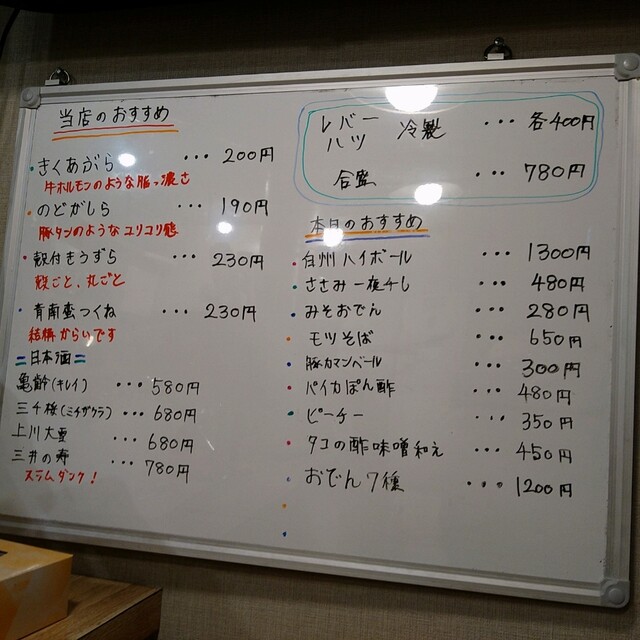 当店のおすすめ
きくあぶら ・・・ 200円
牛ホルモンのような脂っ濃さ
のどがしら ・・・ 190円
豚タンのようなコリコリ感
殻付きうずら ・・・ 230円
殻ごと、丸ごと
青南蛮つくね ・・・ 230円
結構からいです
日本酒
亀齢(キレイ) ・・・ 580円
三千桜(ミチザクラ) ・・・ 680円
上川大雪 ・・・ 680円
三井の寿 ・・・ 780円
スラムダンク!
レバー
ハツ 冷製 ・・・ 各400円
合盛 ・・・ 780円
本日のおすすめ
白州ハイボール ・・・ 1300円
ささみ一夜干し ・・・ 480円
みそおでん ・・・ 280円
モツそば ・・・ 650円
豚カマンベール ・・・ 300円
パイカぽん酢 ・・・ 480円
ピーチー ・・・ 350円
タコの酢味噌和え ・・・ 450円
おでん7種 ・・・ 1200円